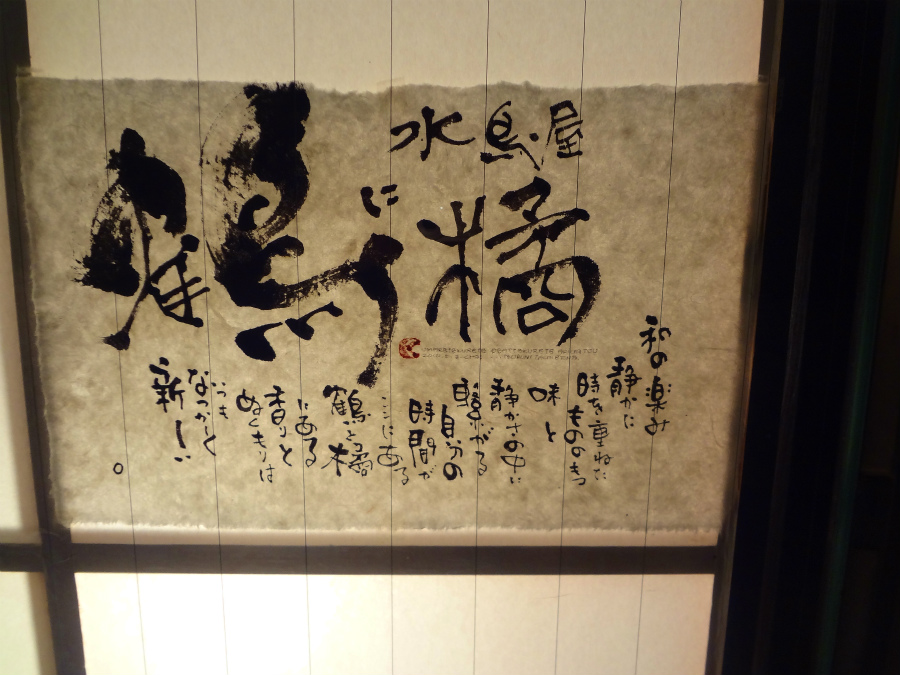 水鳥屋
鶴に橘
和の楽み
静かに
時を重ねた
もののもつ
味と
静かさの中に
繋がる
自分の
時間が
ここにある
鶴と橘
にある
香りと
ぬくもりは
いつも
なつかしく
新しい。